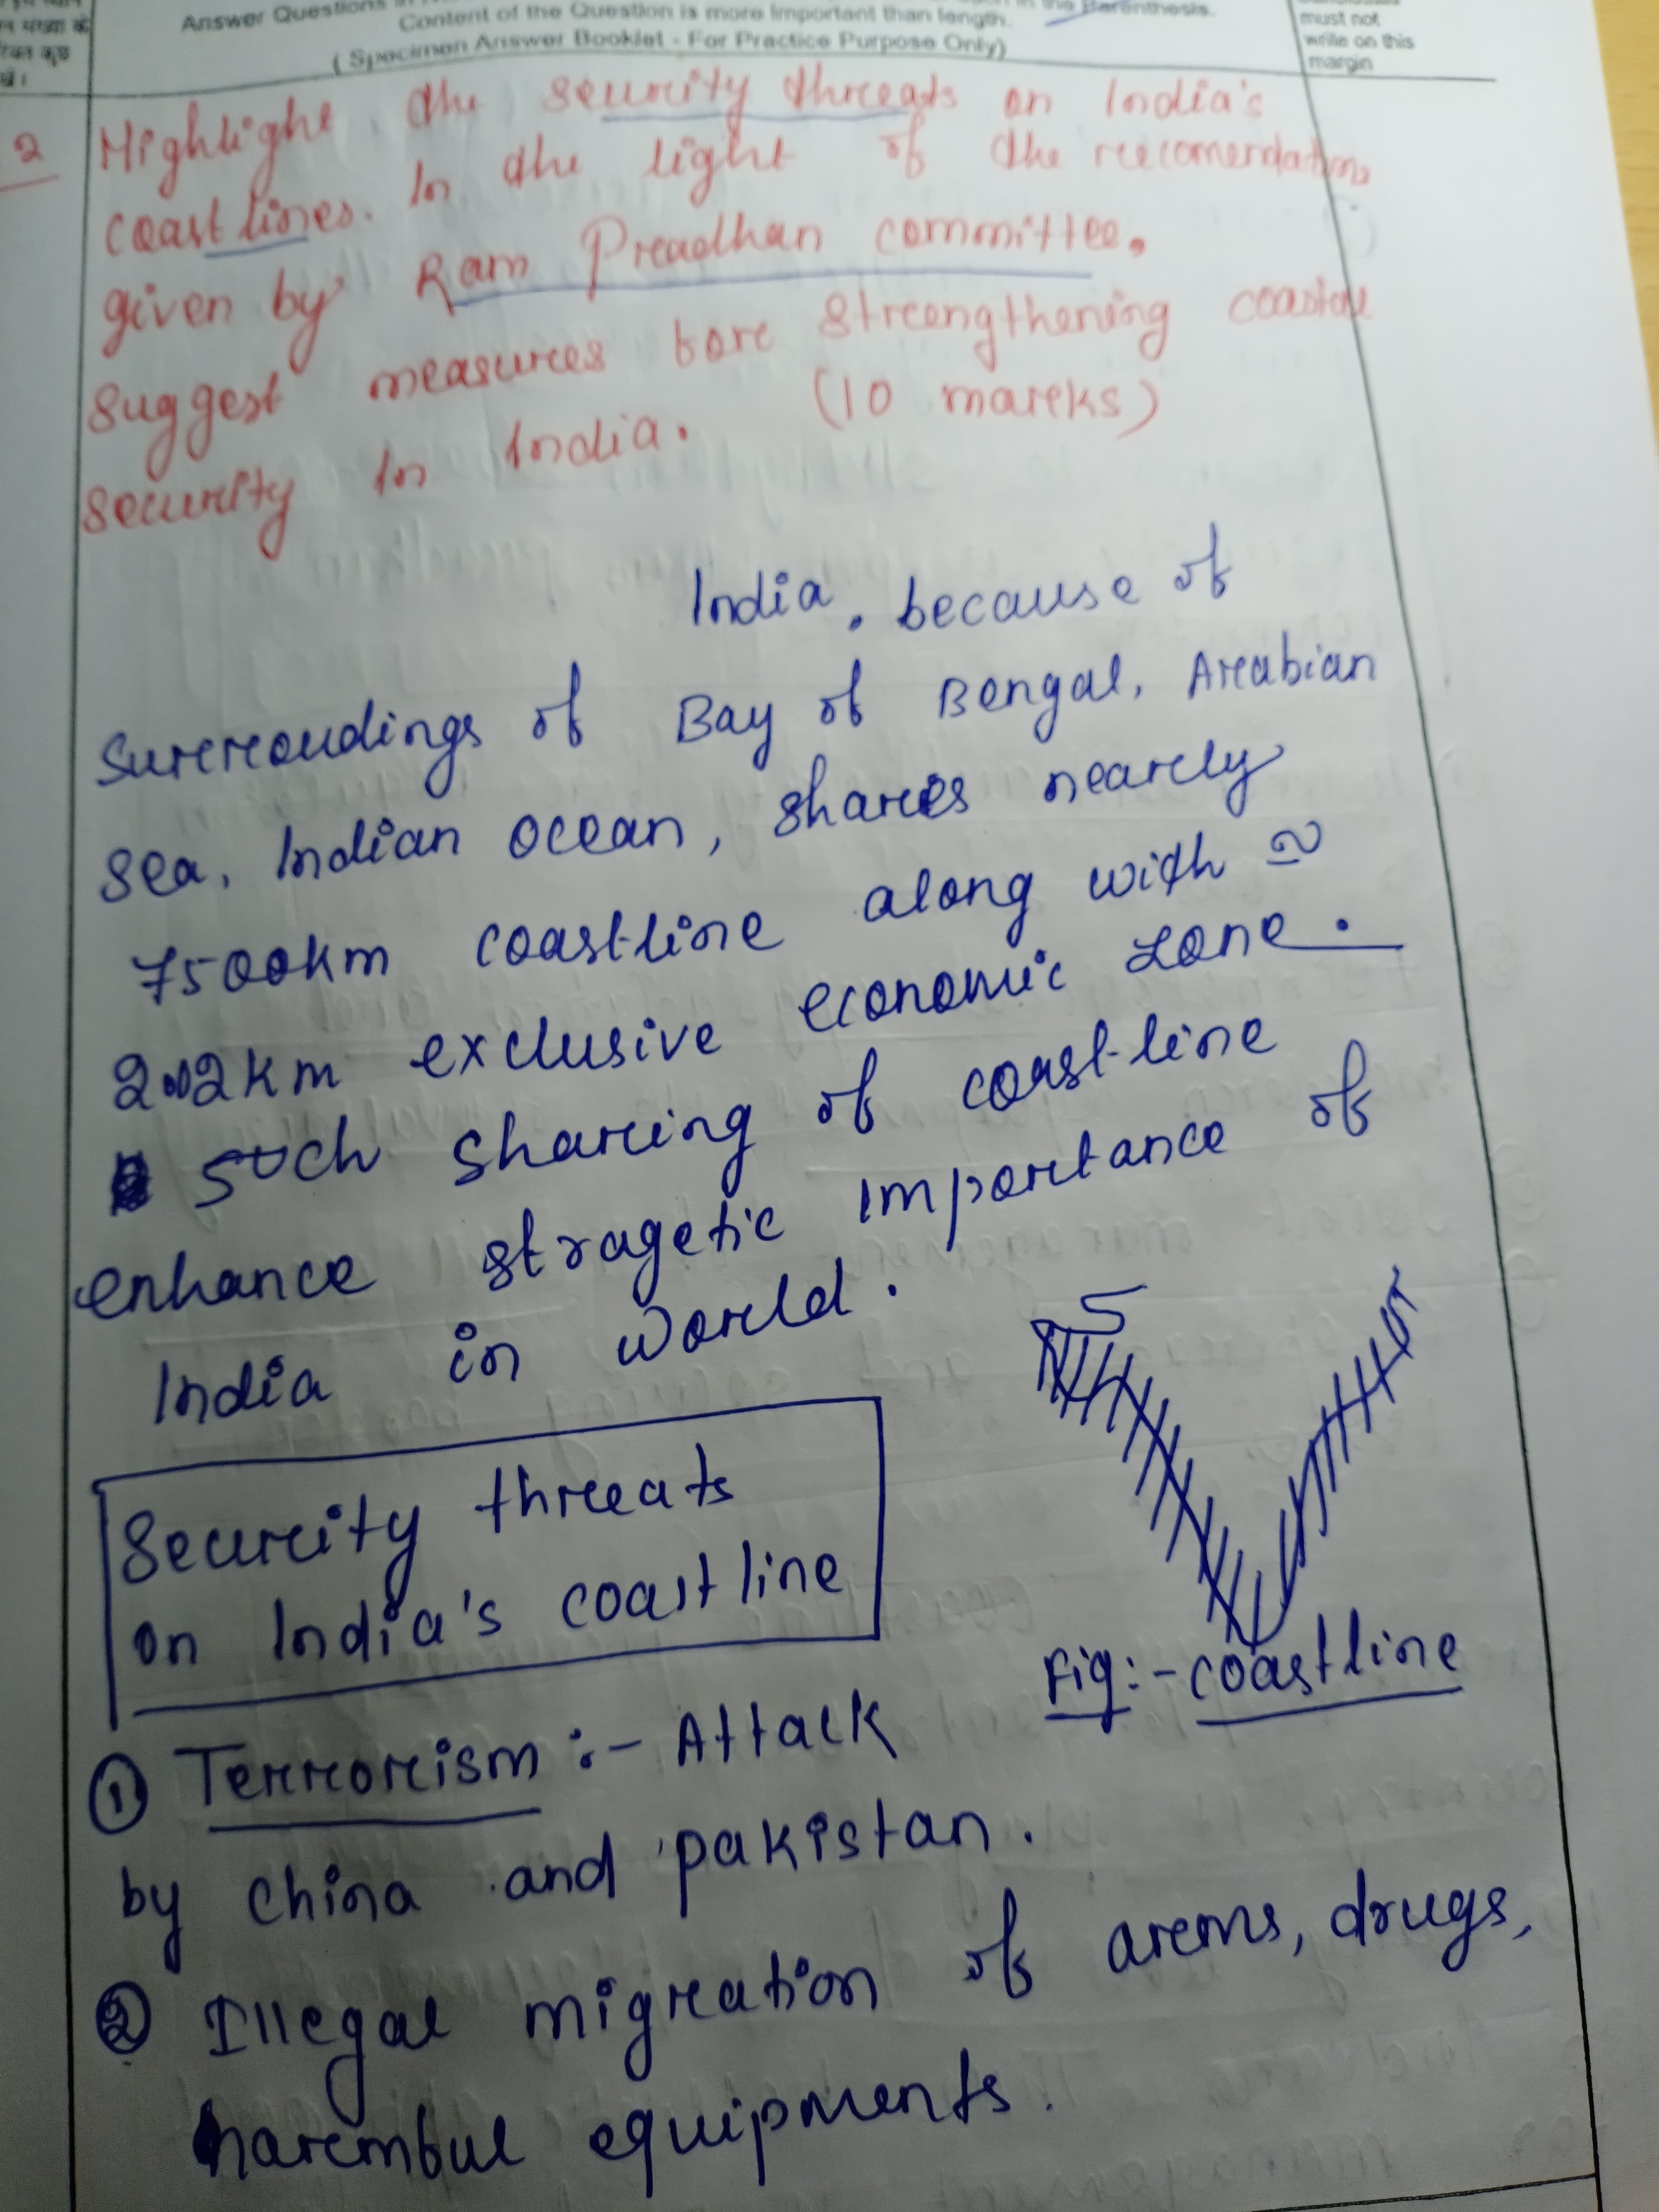 Answer Questions in
Content of the Question is more important than length.
( Specimen Answer Booklet - For Practice Purpose Only)
must not
write on this
margin
2 Highlight the security threats on India's
coastlines. In the light of the recomendations
given by Ram Pradhan committee,
suggest measures for strengthening coastal
security in India. (10 marks)
India, because of
surroudings of Bay of Bengal, Arabian
sea, Indian ocean, shares nearly
7500km coastline along with ≃
2.02km exclusive economic zone.
such sharing of coastline
enhance stragetic importance of
India in world.
Security threats
on India's coastline
Fig:- coastline
① Terrorism :- Attack
by China and pakistan.
② Illegal migration of arms, drugs,
harmful equipments.